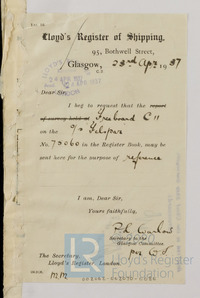 Lloyd's Register of Shipping,
95, Bothwell Street,
Glasgow, C2 23rd Apr 1937
Dear Sir,
I beg to request that the report
of survey held at Freeboard C 11
on the
No. 73060 in the Register Book, may be
sent here for the purpose of reference
I am, Dear Sir,
Yours faithfully,
Secretary to the
Glasgow Committee
per
The Secretary,
Lloyd's Register, London.
MM
LR
Lloyd's Register
Foundation